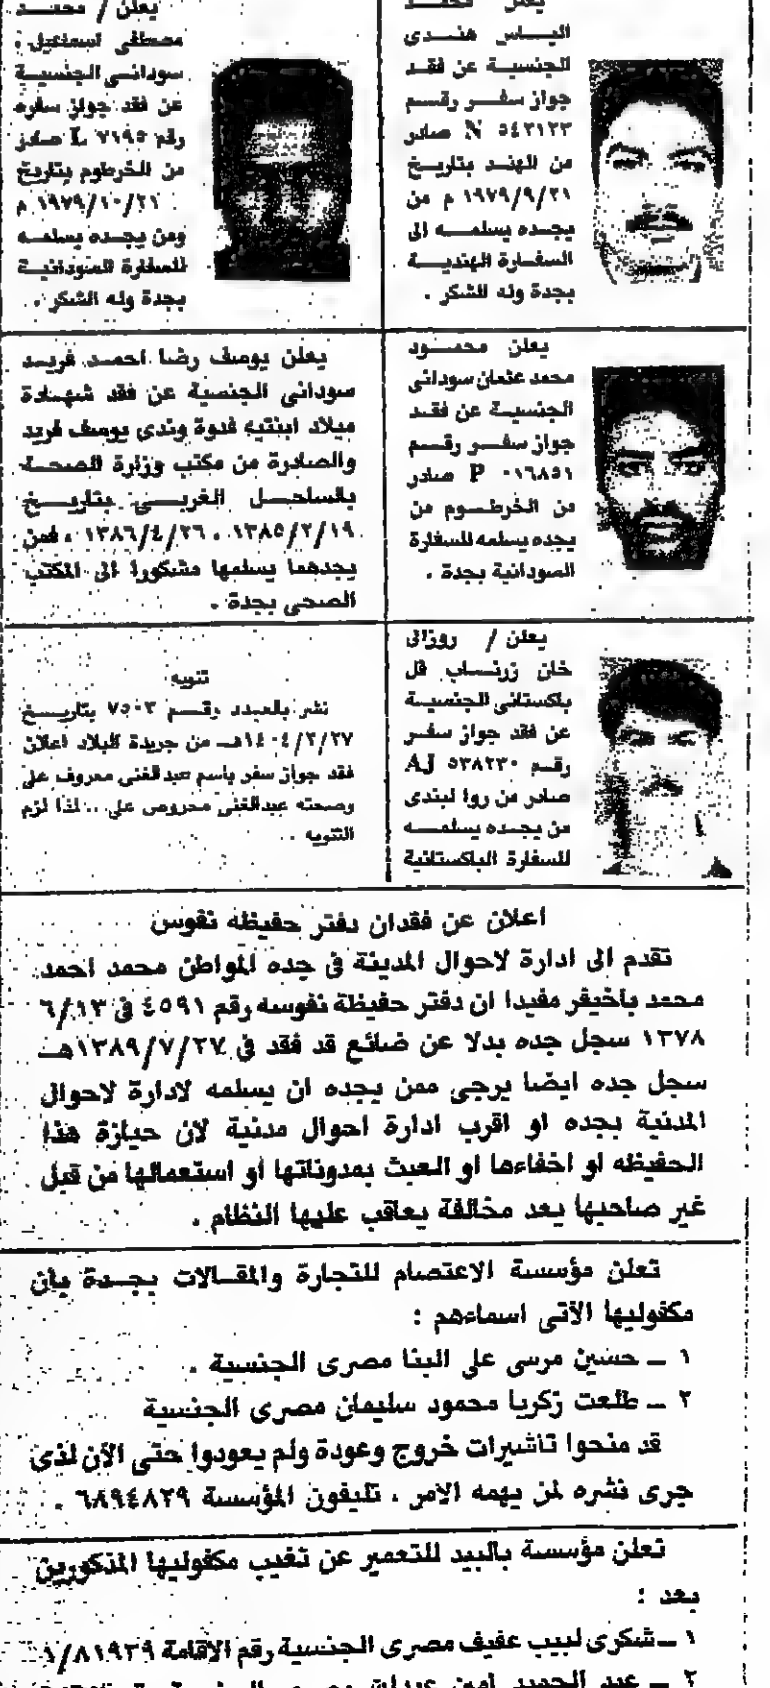 يعلن محمد
الياس هندى
الجنسية عن فقد
جواز سفر رقم
N ٥٤٢١٢٣ صادر
من الهند بتاريخ
١٩٧٩/٩/٢١ م من
يجده يسلمه الى
السفارة الهندية
بجدة وله الشكر .
يعلن / محمد
مصطفى اسمعيل .
سودانى الجنسية
عن فقد جواز سفره
رقم L ٧١٩٥ صادر
من الخرطوم بتاريخ
١٩٧٩/١٠/٢١ م
ومن يجده يسلمه
للسفارة السودانية
بجدة وله الشكر .
يعلن محمود
محمد عثمان سودانى
الجنسية عن فقد
جواز سفر رقم
P ٠١٦٨٥١ صادر
من الخرطوم من
يجده يسلمه للسفارة
السودانية بجدة .
يعلن يوسف رضا احمد فريد
سودانى الجنسية عن فقد شهادة
ميلاد ابنتيه فدوة وندى يوسف فريد
والصادرة من مكتب وزارة الصحة
بالساحل الغربى بتاريخ
١٣٨٥/٢/١٩ ، ١٣٨٦/٤/٢٦ ، فمن
يجدهما يسلمها مشكورا الى المكتب
الصحى بجدة .
يعلن / روزالى
خان زرنساب قل
باكستانى الجنسية
عن فقد جواز سفر
رقم AJ ٥٣٨٢٣٠
صادر من روا لبندى
من يجده يسلمه
للسفارة الباكستانية
تنويه
نشر بالعدد رقم ٧٥٠٣ بتاريخ
١٤٠٤/٢/٢٧هـ من جريدة البلاد اعلان
فقد جواز سفر باسم عبدالغنى معروف على
وصحته عبدالغنى محروص على .. لذا لزم
التنويه .
اعلان عن فقدان دفتر حفيظه نفوس
تقدم الى ادارة لاحوال المدينة فى جده المواطن محمد احمد
محمد باخيقر مفيدا ان دفتر حفيظة نفوسه رقم ٤٥٩١ فى ٦/١٣/
١٣٧٨ سجل جده بدلا عن ضائع قد فقد فى ١٣٨٩/٧/٢٧هـ
سجل جده ايضا يرجى ممن يجده ان يسلمه لادارة لاحوال
المدنية بجده او اقرب ادارة احوال مدنية لان حيازة هذا
الحفيظه او اخفاءها او العبث بمدوناتها او استعمالها من قبل
غير صاحبها يعد مخالفة يعاقب عليها النظام .
تعلن مؤسسة الاعتصام للتجارة والمقالات بجدة بأن
مكفوليها الآتى اسماءهم :
١ ــ حسين مرسى على البنا مصرى الجنسية .
٢ ــ طلعت زكريا محمود سليمان مصرى الجنسية
قد منحوا تاشيرات خروج وعودة ولم يعودوا حتى الآن لذى
جرى نشره لمن يهمه الامر . تليفون المؤسسة ٦٨٩٤٨٢٩ .
تعلن مؤسسة بالبيد للتعمير عن تغيب مكفوليها المذكورين
بعد :
١ ــ شكرى لبيب عفيف مصرى الجنسية رقم الاقامة ١/٨١٩٣٩
٢ ــ عبد الحميد امين